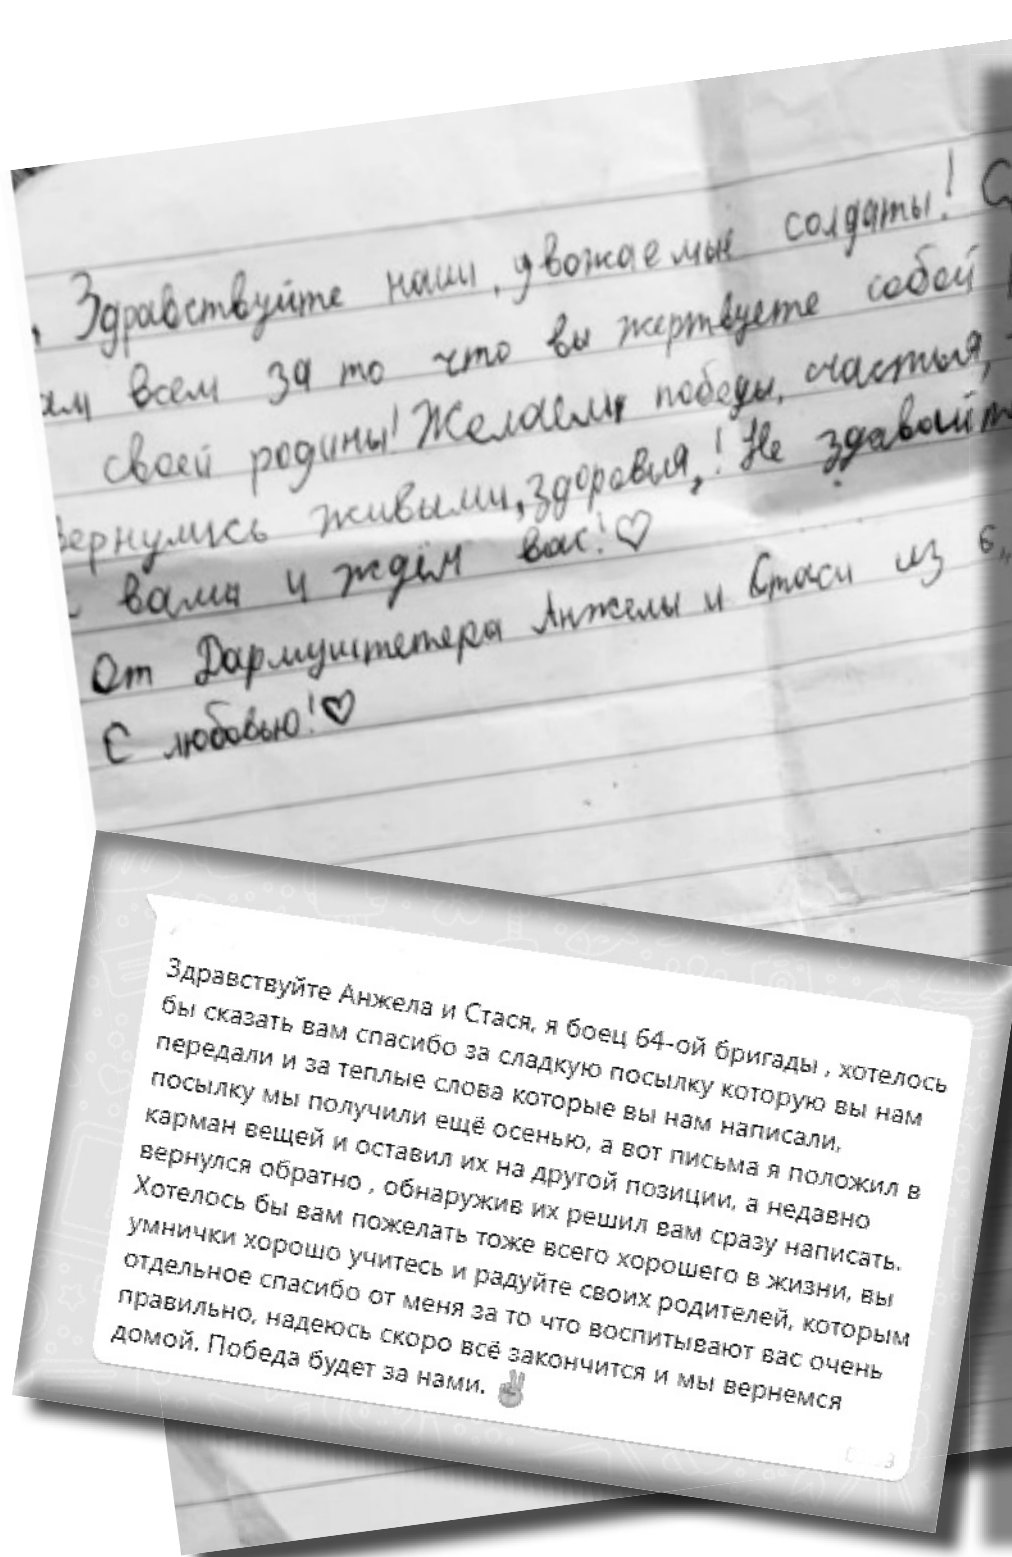 Здравствуйте наши, увожаемые солдаты!
всем за то что вы жертвуете собой
своей родины! Желаем победы, счастья,
вернулись живыми, здоровия,! Не здавайт
вами и ждём вас! ♡
От Дармуштетера Анжелы и Стаси из
С любовью! ♡
Здравствуйте Анжела и Стася, я боец 64-ой бригады , хотелось
бы сказать вам спасибо за сладкую посылку которую вы нам
передали и за теплые слова которые вы нам написали,
посылку мы получили ещё осенью, а вот письма я положил в
карман вещей и оставил их на другой позиции, а недавно
вернулся обратно , обнаружив их решил вам сразу написать.
Хотелось бы вам пожелать тоже всего хорошего в жизни, вы
умнички хорошо учитесь и радуйте своих родителей, которым
отдельное спасибо от меня за то что воспитывают вас очень
правильно, надеюсь скоро всё закончится и мы вернемся
домой. Победа будет за нами. ✌